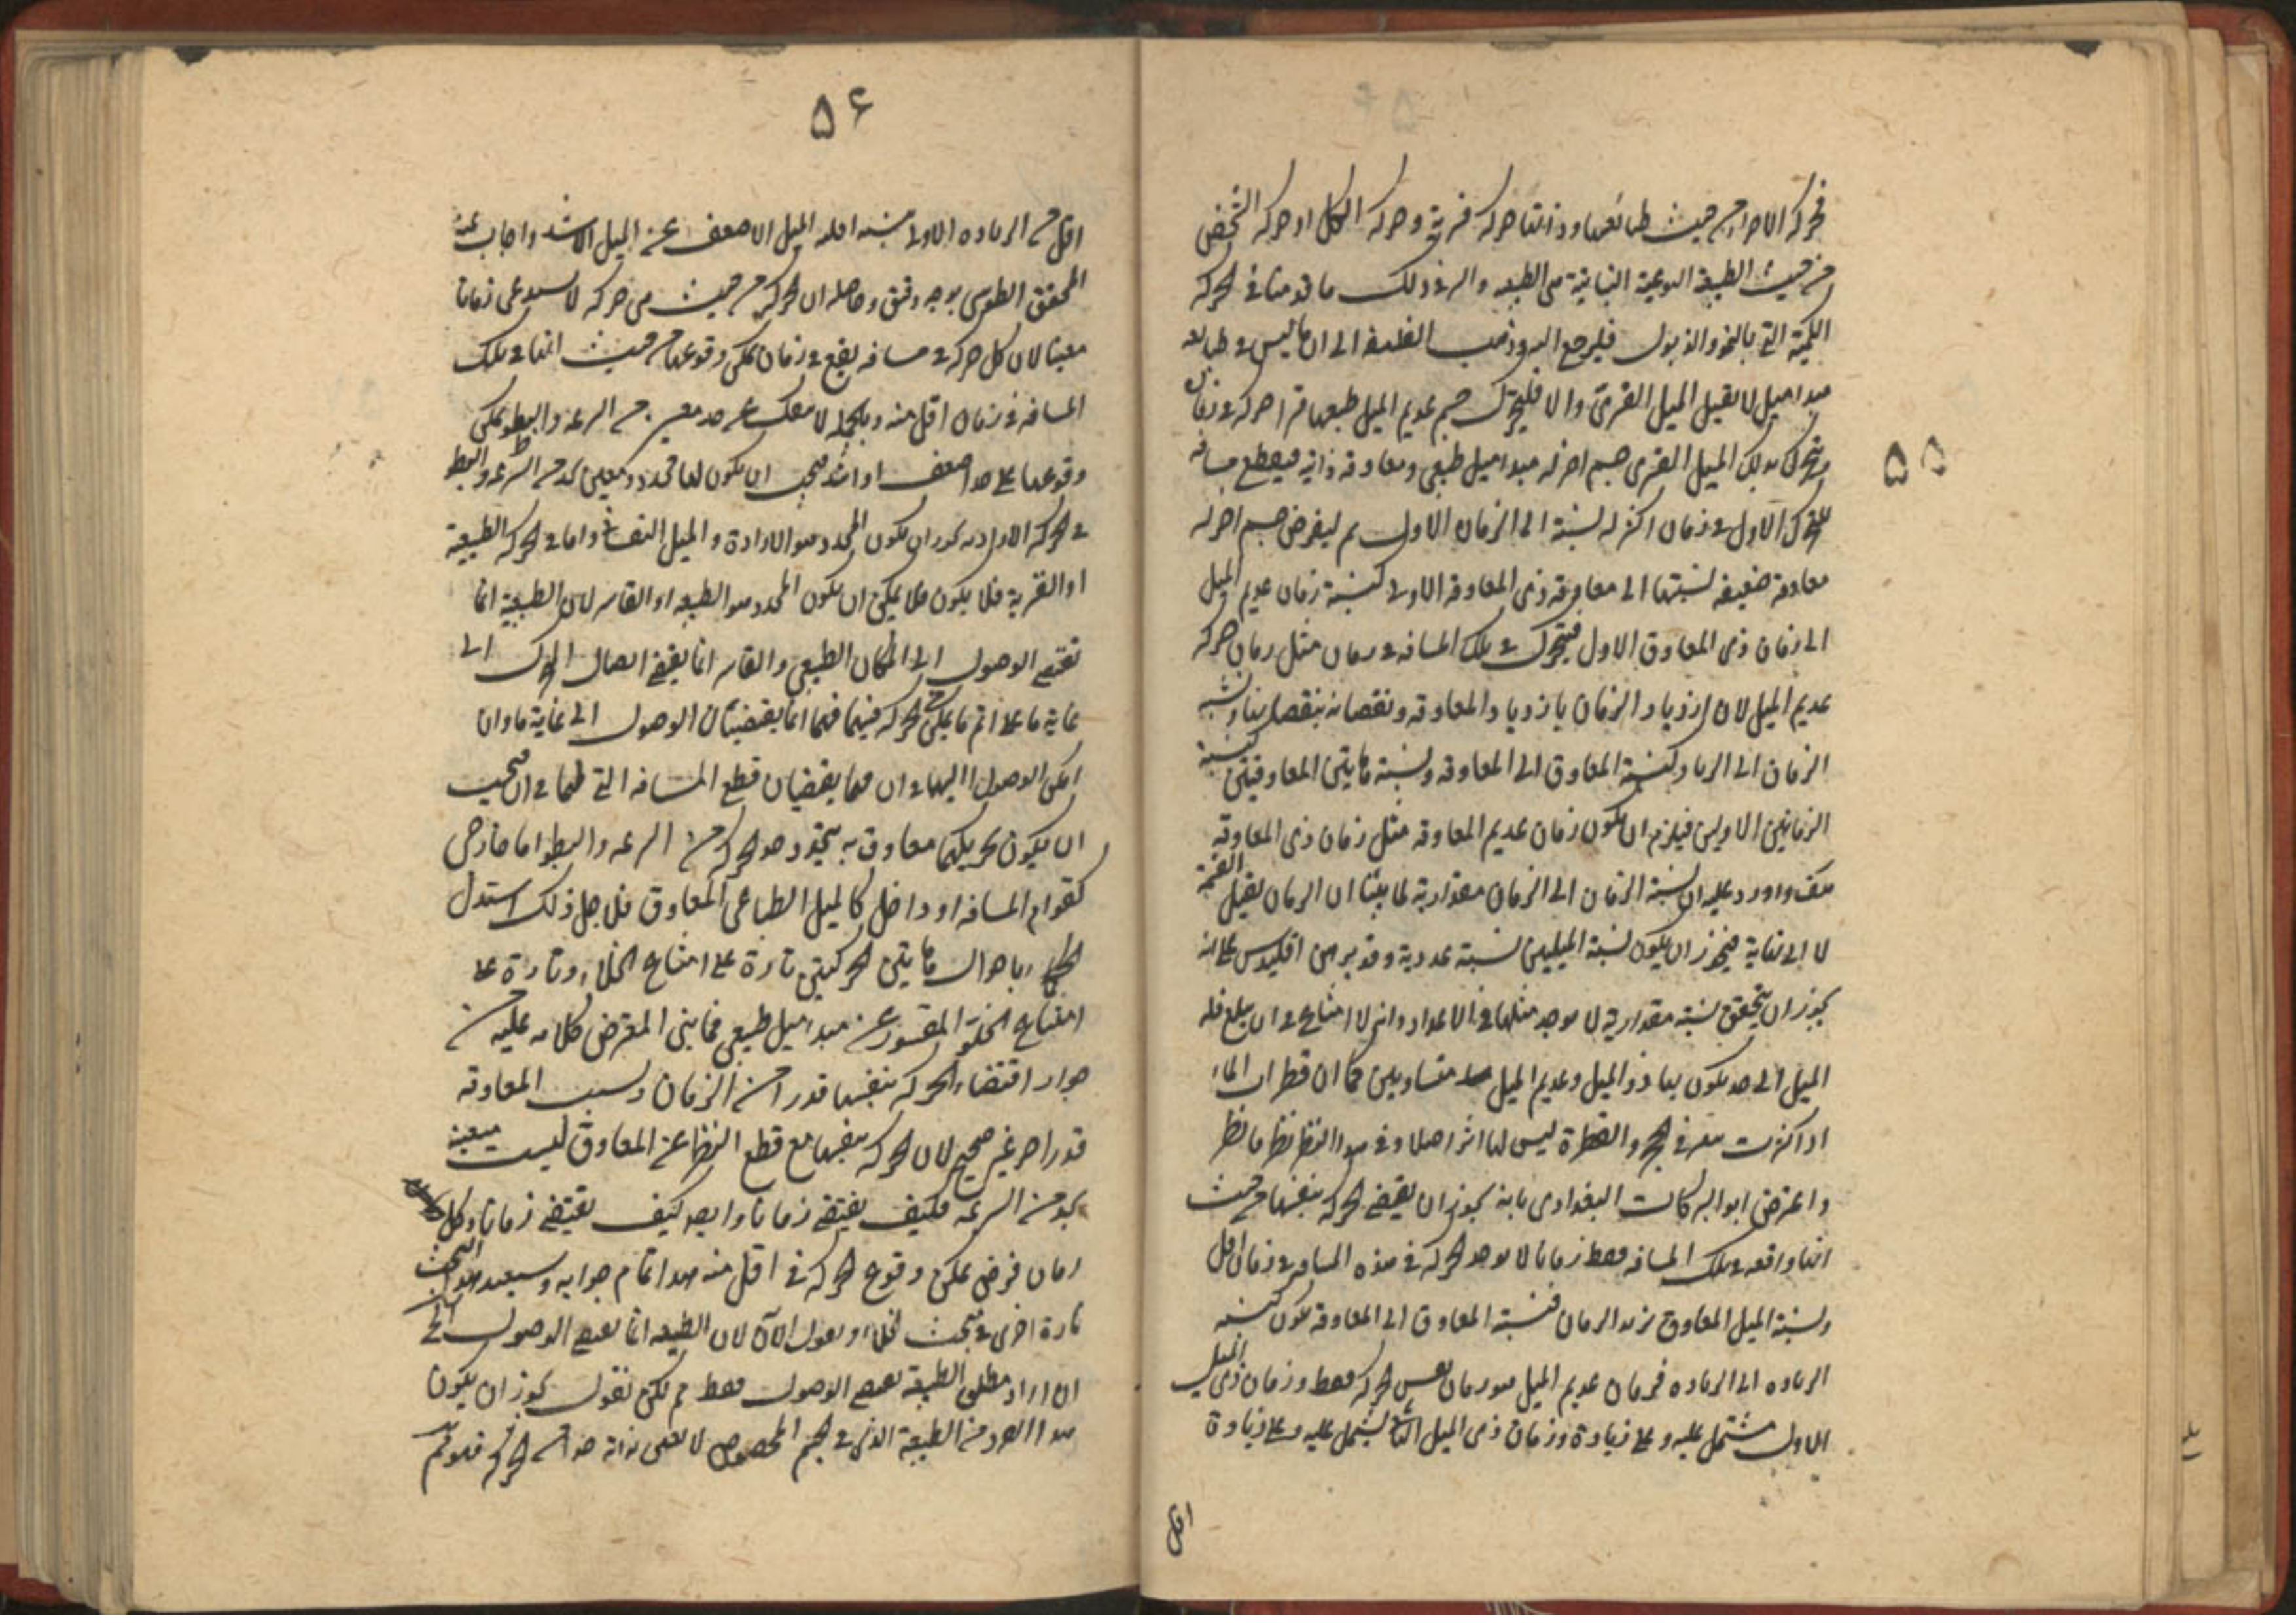 ٥٥
فحركة الاجزاء من حيث طبائعها وذاتها حركة قسرية وحركة الكل او حركة الشخص
من حيث الطبيعة النوعية الثانية هى الطبيعه والسر فى ذلك ما قدمنا فى الحركة
الكمية التى بالنمو والذبول فليرجع اليه وذهب الفلاسفه الى ان ما ليس فى طباعه
مبدا ميل لا يقبل الميل القسرى والا فليتحرك جسم عديم الميل طبعها قسرا حركة فى زمان
وليتحرك بذلك الميل القسرى جسم اخر له مبدا ميل طبعى ومعاوقه ذاتيه فيقطع مسافه
المتحرك الاول فى زمان اكثر له نسبة الى الزمان الاول ثم ليفرض جسم اخر له
معاوقة ضعيفه نسبتها الى معاوقه ذى المعاوقه الاولى كنسبة زمان عديم الميل
الى زمان ذى المعاوق الاول فيتحرك فى تلك المسافه فى زمان مثل زمان حركة
عديم الميل لان ازدياد الزمان بازدياد المعاوقه ونقصانه بنقصانها ونسبة
الزمان الى الزمان كنسبة المعاوق الى المعاوقه ونسبة هاتين المعاوقتين كنسبة
الزمانين الاولين فيلزم ان يكون زمان عديم المعاوقه مثل زمان ذى المعاوقة
هف واورد عليه ان نسبة الزمان الى الزمان مقدارية لما بيّنا ان الزمان يقبل القسمة
لا الى نهاية فيجوز ان يكون نسبة الميلين نسبة عددية وقد برهن اقليدس على انه
يجوز ان يتحقق نسبة مقدارية لا يوجد مثلها فى الاعداد وانه لا امتناع فى ان يبلغ قله
الميل الى حد يكون بها ذو الميل وعديم الميل متساويين كما ان قطرات الماء
اذا كثرت تنقر فى الحجر والقطرة ليس لها اثر اصلا وفى هذا النظر نظر فانظر
واعترض ابو البركات البغدادى بانه يجوز ان يقتضى الحركة بنفسها من حيث
انها واقعه فى تلك المسافه فقط زمانا لا يوجد الحركه فى هذه المسافه فى زمان اقل
ونسبة الميل المعاوق يزيد الزمان فنسبة المعاوق الى المعاوقه يكون كنسبة
الزياده الى الزياده فزمان عديم الميل هو زمان نفس الحركه فقط وزمان ذى الميل
الاول مشتمل عليه وعلى زيادة وزمان ذى الميل الثانى يشتمل عليه وعلى زيادة
اقل
٥۶
اقل من الزياده الاولى بنسبه اقليه الميل الاضعف عن الميل الاشد واجاب عنه
المحقق الطوسى بوجه دقيق وحاصله ان الحركة من حيث هى حركه لا يستدعى زمانا
معينا لان كل حركة فى مسافه يقع فى زمان يمكن وقوعها من حيث انها فى تلك
المسافه فى زمان اقل منه وبالجملة لا ينفك عن حد معين من السرعه والبطو يمكن
وقوعها على حد اضعف او اشد فيجب ان يكون لها محدد ومعين لحد من السرعه والبطو
فى الحركه الاراديه يجوز ان يكون المحدد هو الارادة والميل النفسانى واما فى الحركه الطبيعية
او القسرية فلا يكون فلا يمكن ان يكون المحدد هو الطبيعه او القاسر لان الطبيعية انما
تقتضى الوصول الى المكان الطبيعى والقاسر انما يقتضى ايصال المتحرك الى
غاية ما على اتم ما يمكن الحركه فيهما فهما انما يقتضيان الوصول الى غاية ما وان
امكن الوصول اليها فى ان فهما يقتضيان قطع المسافه التى لهما فى ان فيجب
ان يكون تحريكهما معاوق به يتحدد حد الحركه من السرعه والبطو اما خارجى
كقوام المسافه او داخلى كالميل الطباعى المعاوق فلاجل ذلك استدل
الحكماء باحوال هاتين الحركتين تارة على امتناع الخلاء وتارة على
امتناع الخلو المقسور عن مبدا ميل طبيعى فما بنى المعترض كلامه عليه من
جواز اقتضاء الحركه بنفسها قدرا من الزمان وبسبب المعاوقه
قدرا اخر غير صحيح لان الحركه بنفسها مع قطع النظر عن المعاوق ليست متعينه
بحد من السرعه فكيف يقتضى زمانا وايضا كيف تقتضى زمانا وكل
زمان فرض يمكن وقوع الحركه فى اقل منه هذا تمام جوابه وسيعيد هذا البحث
تارة اخرى فى مبحث الخلاء ونقول الآن لان الطبيعه انما تقتضى الوصول الى
ان اراد مطلق الطبيعة تقتضى الوصول فقط ثم لكن نقول يجوز ان يكون
هذا الفرد من الطبيعة الذى فى الجسم المخصوص لا تقتضى بذاته حدا من الحركه فلا تم